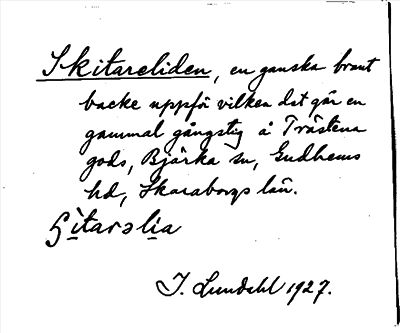 Skitareliden, en ganska brant
backe uppför vilken det går en
gammal gångstig å Trästena
gods, Bjärka sn, Gudhems
hd, Skaraborgs län.
ʃìtarəlia
I. Lundahl 1927.